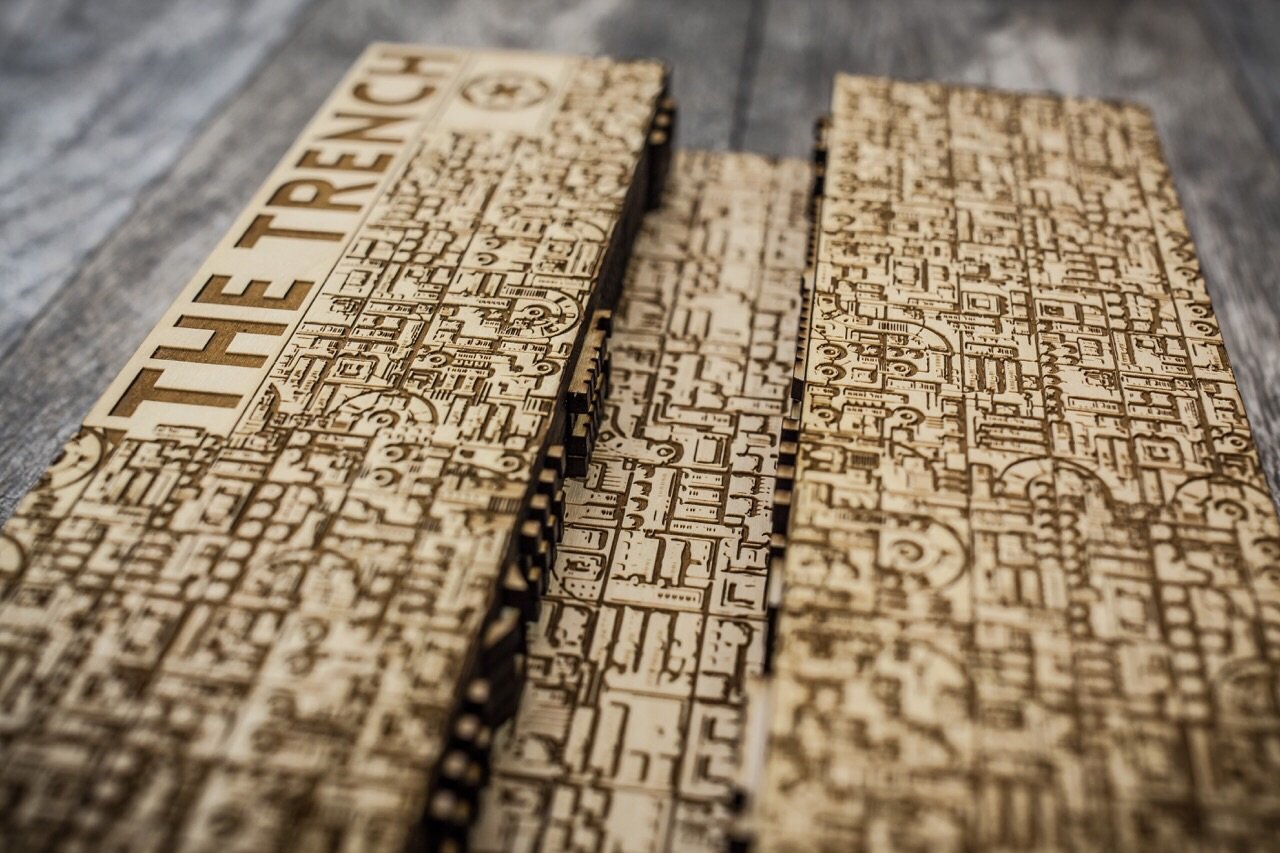 THE TRENCH